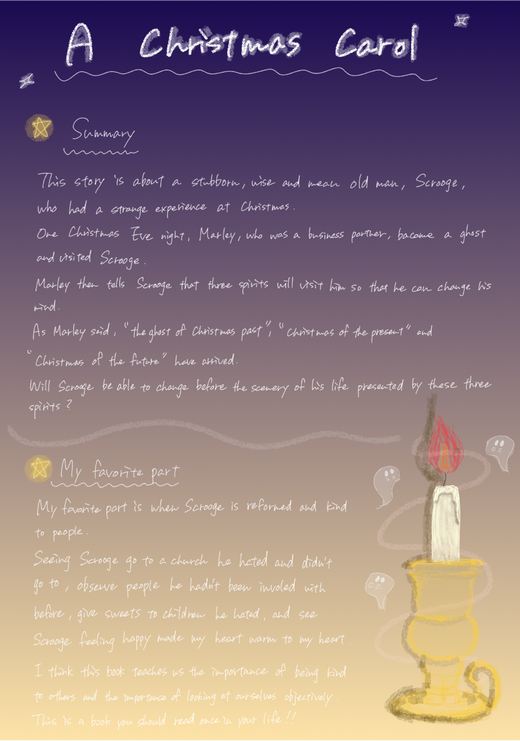 A Christmas Carol
Summary
This story is about a stubborn, wise and mean old man, Scrooge,
who had a strange experience at Christmas.
One Christmas Eve night, Marley, who was a business partner, bacame a ghost
and visited Scrooge.
Marley then tells Scrooge that three spirits will visit him so that he can change his
mind.
As Marley said, "the ghost of Christmas past", "Christmas of the present" and
"Christmas of the future" have arrived.
Will Scrooge be able to change before the scenery of his life presented by these three
spirits?
My favorite part
My favorite part is when Scrooge is reformed and kind
to people.
Seeing Scrooge go to a church he hated and didn't
go to, observe people he hadn't been involed with
before, give sweets to children he hated, and see
Scrooge feeling happy made my heart warm to my heart
I think this book teaches us the importance of being kind
to others and the importance of looking at ourselves objectively.
This is a book you should read once in your life!!